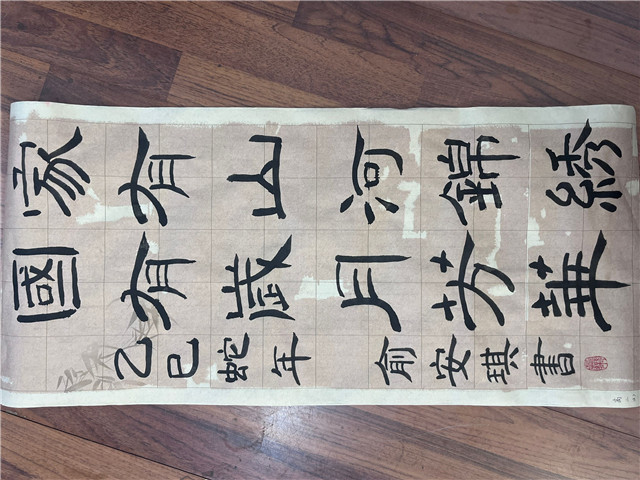 家有山河錦綉
國有歲月芳華
乙巳蛇年 俞安琪書